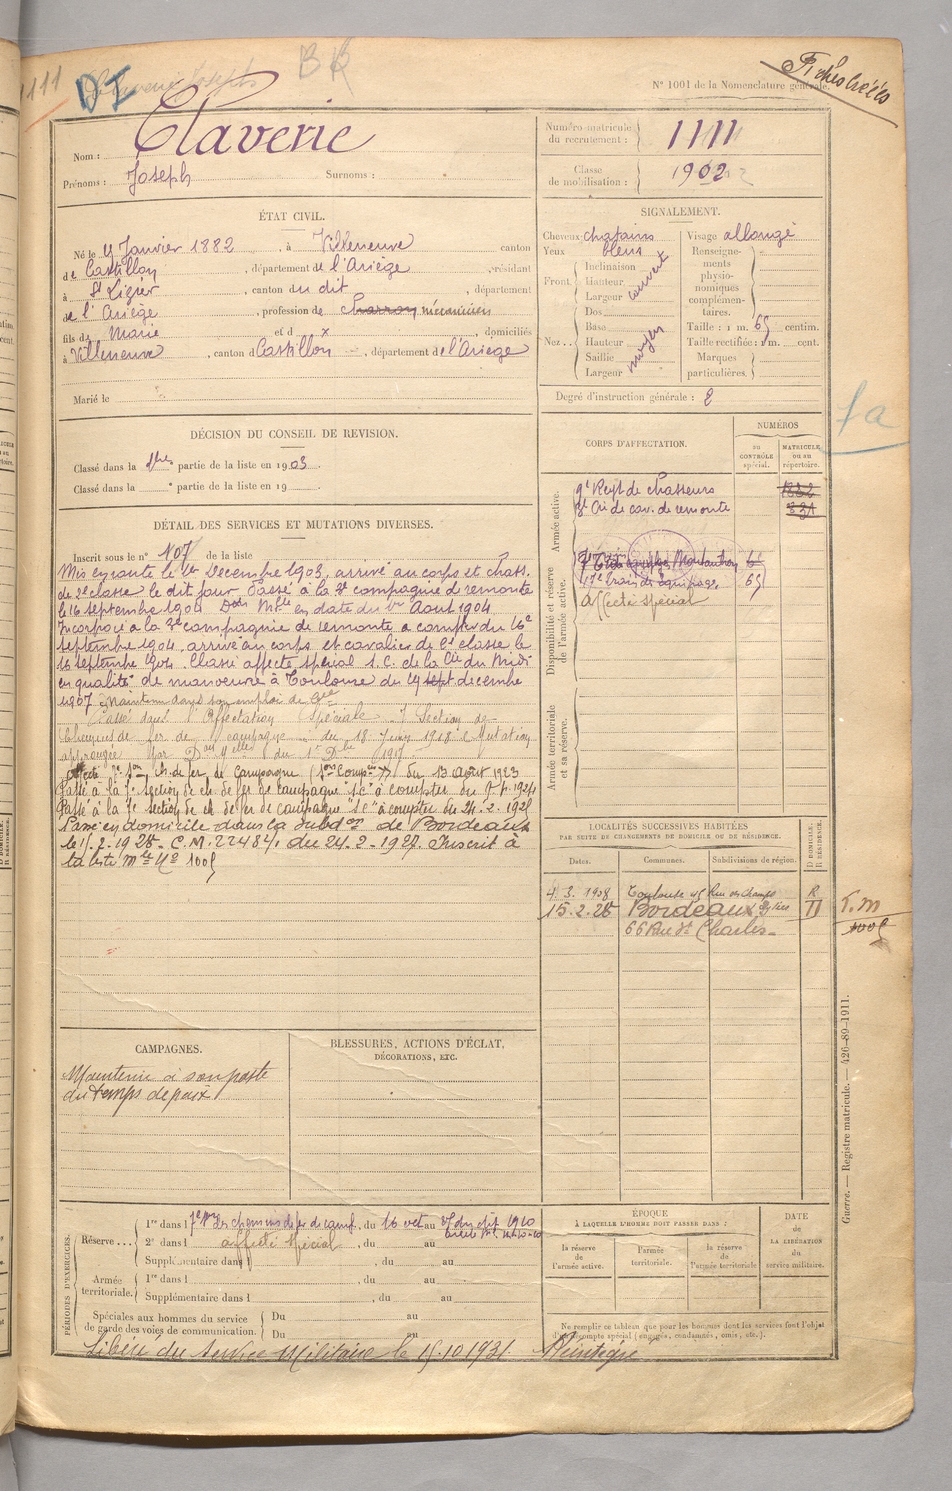 1111
DI
BR
Fiches Créées
N° 1001 de la Nomenclature générale.
Nom : Claverie
Prénoms : Joseph Surnoms :
Numéro matricule du recrutement : 1111
Classe de mobilisation : 1902
ÉTAT CIVIL.
Né le 4 Janvier 1882, à Villeneuve canton
de Castillon, département de l'Ariège, résidant
à St Ligier, canton du dit, département
de l'Ariège, profession de charron mécanicien
fils de Marie et d x, domiciliés
à Villeneuve, canton d Castillon, département de l'Ariège
Marié le
SIGNALEMENT.
Cheveux chatains
Yeux bleus
Front Inclinaison
Hauteur couvert
Largeur
Nez Dos
Base
Hauteur moyen
Saillie
Largeur
Visage allongé
Renseignements physionomiques complémentaires.
Taille : 1 m. 65 centim.
Taille rectifiée : 1 m. cent.
Marques particulières.
Degré d'instruction générale : 2
DÉCISION DU CONSEIL DE REVISION.
Classé dans la 1re partie de la liste en 1903.
Classé dans la e partie de la liste en 19
DÉTAIL DES SERVICES ET MUTATIONS DIVERSES.
Inscrit sous le n° 107 de la liste
Mis en route le 1er Decembre 1903, arrivé au corps et chass.
de 2e classe le dit jour. Passé à la 3e compagnie de remonte
le 16 septembre 1904 Don Mlle en date du 1er Aout 1904
Incorporé a la 3e compagnie de remonte a compter du 16
septembre 1904, arrivé au corps et cavalier de 2e classe le
16 septembre 1904. Classé affecté spécial s.c. de la Cie du Midi
en qualité de manoeuvre à Toulouse du 19 sept decembre
1907 Maintenu dans son emploi de
Passé dans l'Affectation Spéciale 7 Section de
Chemins de fer de campagne du 18 Juin 1918 mutation
approuvée par
Affecté 7e Son ch. de fer de Campagne du 13 aout 1923
Passé à la 7e Section de ch. de fer de campagne "sc" à compter du 9.4.1924
Passé à la 7e section de ch de fer de campagne "sc" à compter du 24.2.1928
Passé en domicile dans la subdon de Bordeaux
le 15.2.1928 - C.M. 22484, du 24.2.1928. Inscrit à
la liste mle N° 1005
CORPS D'AFFECTATION.
NUMÉROS
au CONTRÔLE spécial.
MATRICULE ou au répertoire.
Armée active.
9e Regt de Chasseurs
3e Cie de cav. de remonte 831
Disponibilité et réserve de l'armée active.
Montauban
17e train des équipages 65
Affecté spécial
Armée territoriale et sa réserve.
1a
LOCALITÉS SUCCESSIVES HABITÉES
PAR SUITE DE CHANGEMENTS DE DOMICILE OU DE RÉSIDENCE.
Dates. Communes. Subdivisions de région. D DOMICILE. R RÉSIDENCE.
4.3.1908 Toulouse 45 Rue des Champs R
15.2.28 Bordeaux D
66 Rue St Charles
T.m
1005
CAMPAGNES.
Maintenu à son poste
du temps de paix
BLESSURES, ACTIONS D'ÉCLAT,
DÉCORATIONS, ETC.
PÉRIODES D'EXERCICES.
Réserve... 1re dans l 7e Son des chemins de fer de camp. du 16 oct au 27 du dit 1910
2e dans l affecté spécial, du au
Supplémentaire dans l, du au
Armée territoriale. 1re dans l, du au
Supplémentaire dans l, du au
Spéciales aux hommes du service de garde des voies de communication. Du au
Du au
ÉPOQUE
À LAQUELLE L'HOMME DOIT PASSER DANS :
la réserve de l'armée active.
l'armée territoriale.
la réserve de l'armée territoriale
DATE de LA LIBÉRATION du service militaire.
Ne remplir ce tableau que pour les hommes dont les services font l'objet d'un décompte spécial (engagés, condamnés, omis, etc.).
Libéré du Service Militaire le 15.10.1931. Réintégré
Guerre. — Registre matricule. — 426-89-1911.